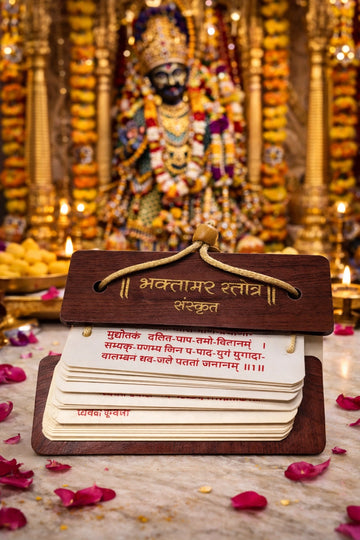 ॥ भक्तामर स्तोत्र ॥
संस्कृत
मुद्योतकं दलित-पाप-तमो-वितानम् ।
सम्यक्-प्रणम्य जिन प-पाद-युगं युगादा-
वालम्बनं थव-जले पततां जनानाम् ॥1॥